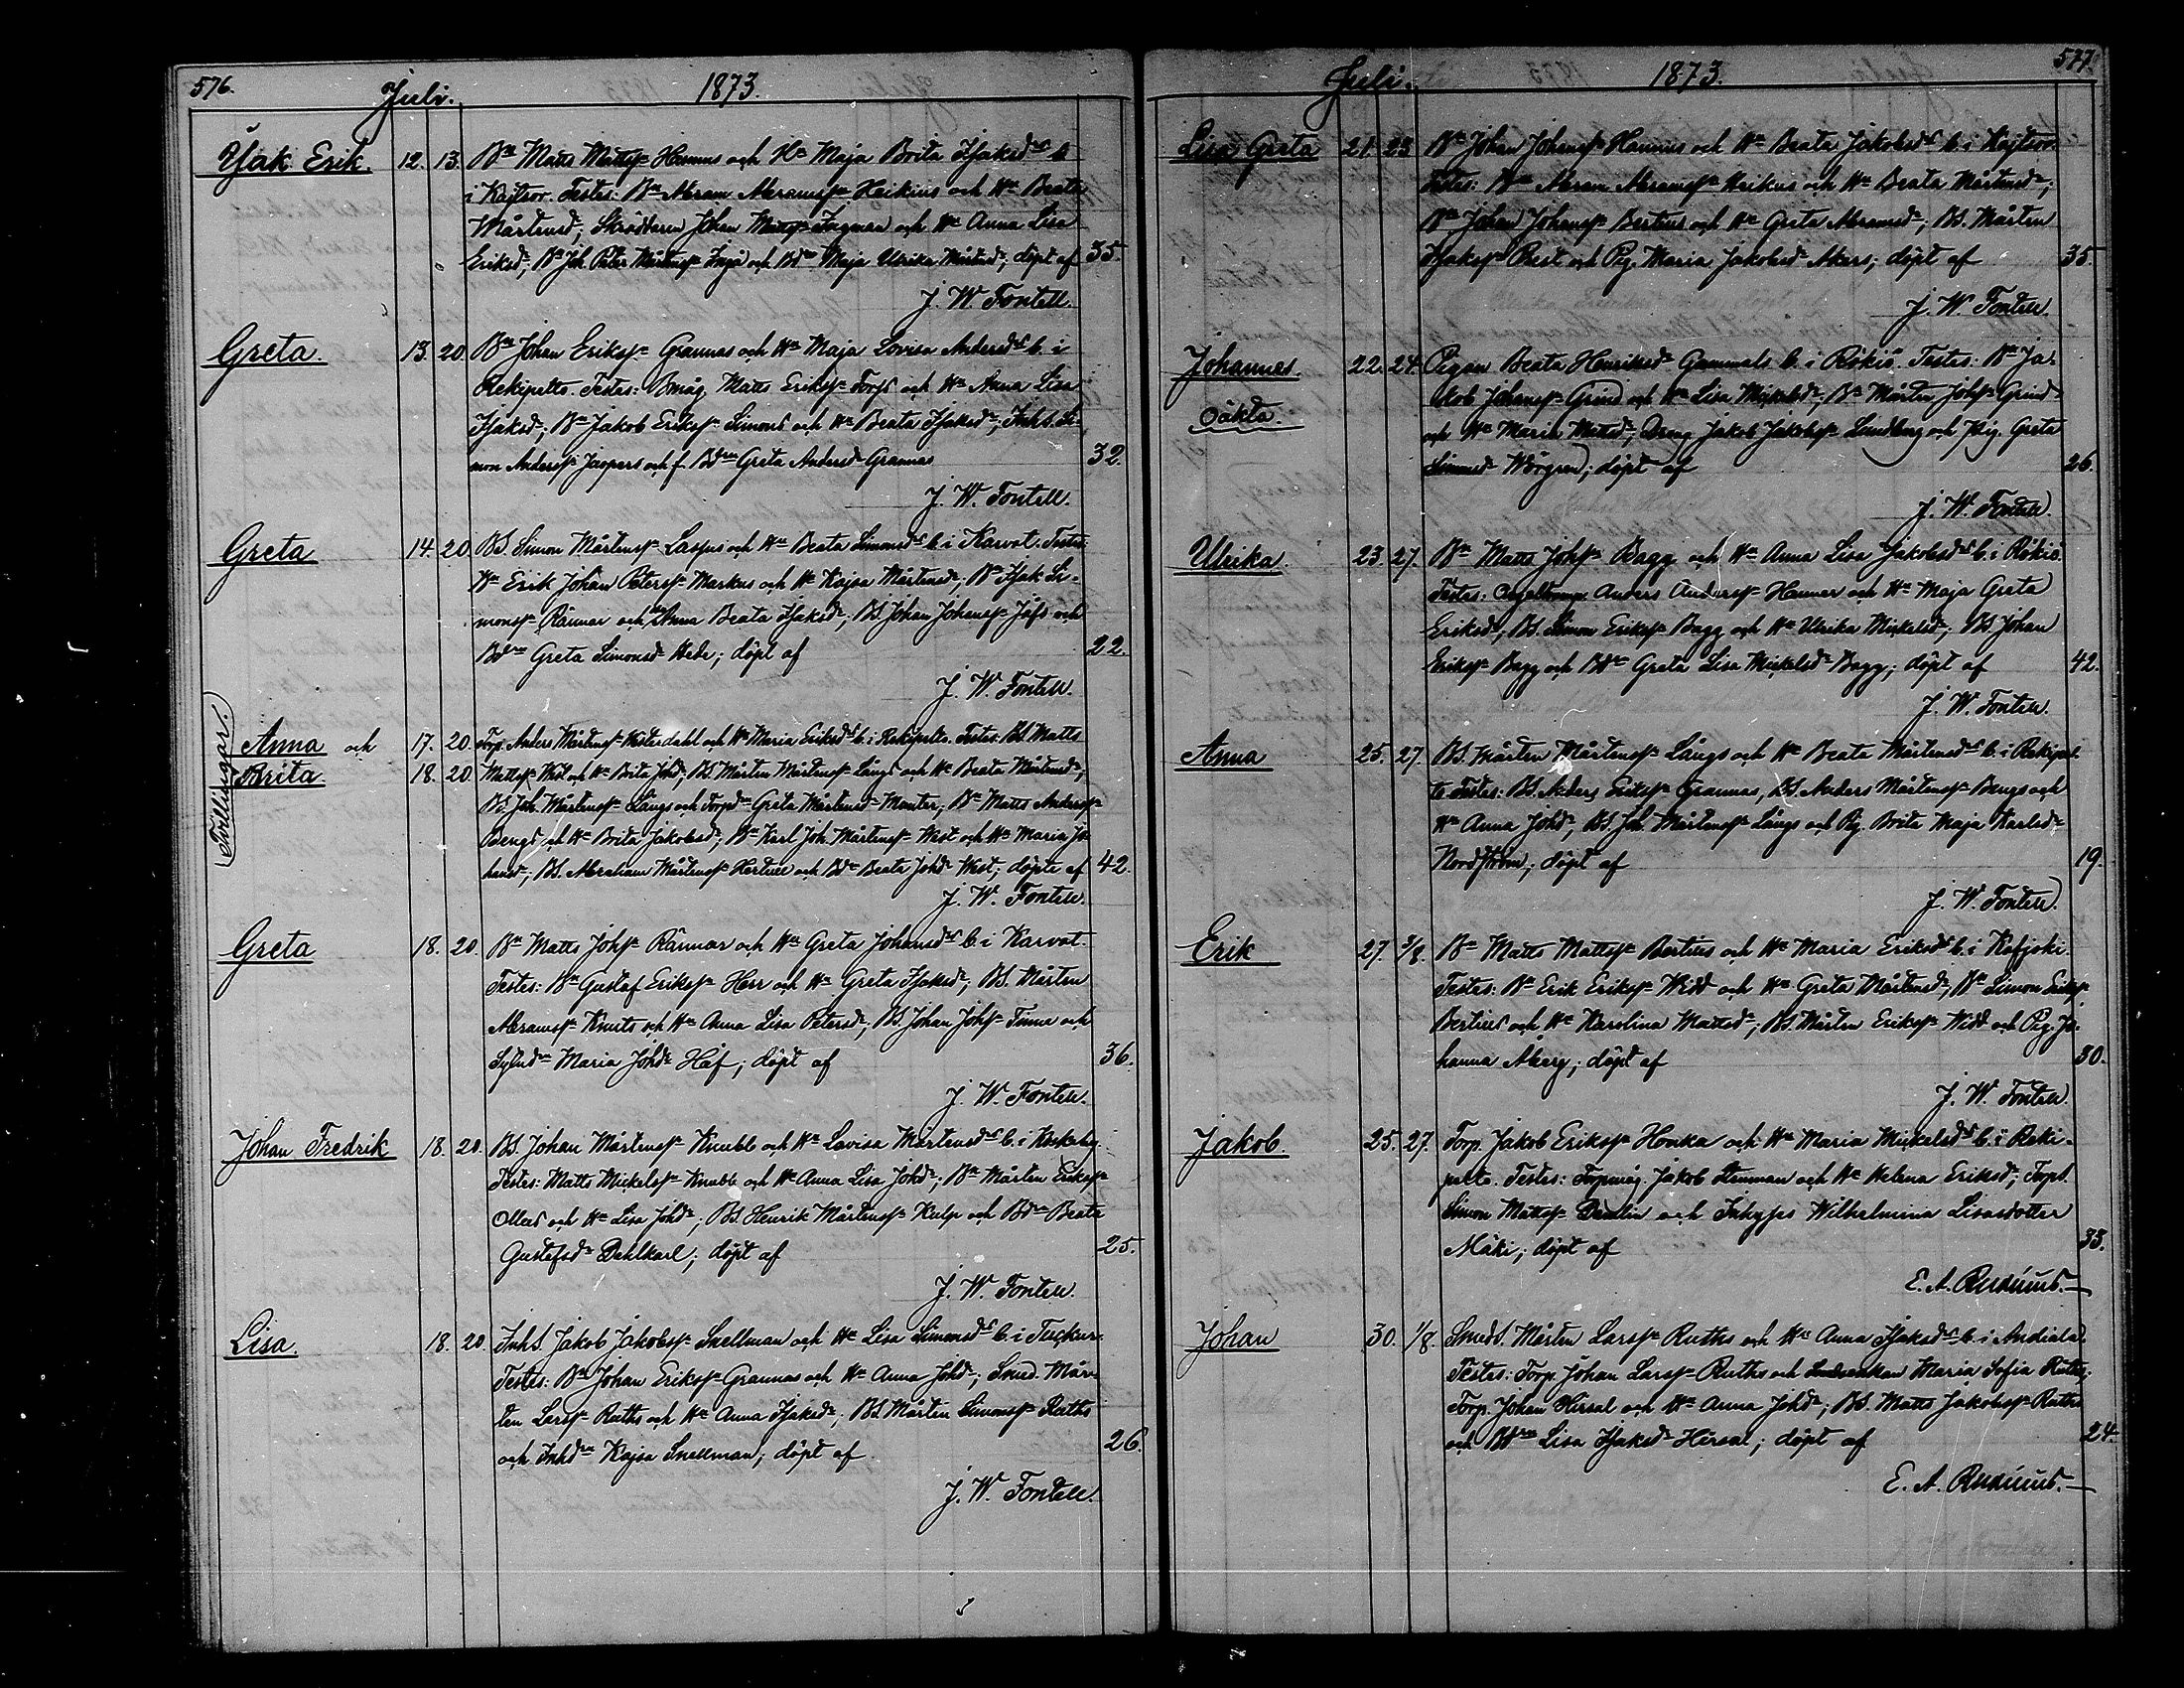 576.
Juli. 1873.
Isak Erik. 12. 13. Bn Matts Mattss. Hannus och Hu Maja Brita Isaksds b.
i Kajtsor. Testes: Bn Abram Abramss. Heikius och Hu Beata
Mårtensd; Skräddaren Johan Mattss. Ingman och Hu Anna Lisa
Eriksd; Bn Joh. Peter Mårtenss. och Bdn Maja Ulrika Mårtensd; döpt af 35.
J. W. Fontell.
Greta. 13. 20. Bn Johan Erikss. Grannas och Hu Maja Lovisa Andersds b. i
Rekipelto. Testes: Bmåg Matts Erikss. Torps och Hu Anna Lisa
Isaksd; Bn Jakob Erikss. Simons och Hu Beata Isaksd; Inhs. Si-
mon Anderss. Jaspers och f. Bdn Greta Andersd Grannas 32.
J. W. Fontell.
Greta 14. 20. BS. Simon Mårtenss. Laspus och Hu Beata Simonsds b. i Karvat. Testes:
Bn Erik Johan Peterss. Markus och Hu Kajsa Mårtensd; Bn Isak Si-
monss. Rännar och Hu Anna Beata Isaksd; BS. Johan Johanss. Jåfs och
Bdn Greta Simonsd Hede; döpt af 22.
J. W. Fontell.
Tvillingar.
Anna och 17. 20. Torp. Anders Mårtenss. Westerdahl och Hu Maria Eriksds b. i Rekipelto. Testes: BS Matts
Brita. 18. 20. Mattss. West och Hu Brita Johd; BS. Mårten Mårtenss. Långs och Hu Beata Mårtensd;
BS. Joh. Mårtenss. Långs och Torpd Greta Mårtensd Monter; Bn Matts Anderss.
Bengs och Hu Brita Jakobsd; Bn Karl Joh. Mårtenss. West och Hu Maria Jo-
hansd; BS. Abraham Mårtenss. Hertull och Bd Beata Johd West; döpte af 42.
J. W. Fontell.
Greta 18. 20. Bn Matts Johss. Rännar och Hu Greta Johansds b. i Karvat.
Testes: Bn Gustaf Erikss. Herr och Hu Greta Isaksd; BS. Mårten
Abramss. Knuts och Hu Anna Lisa Petersd; BS. Johan Johss. Finne och
Sytnd Maria Johd Håf; döpt af 36.
J. W. Fontell.
Johan Fredrik 18. 20. BS. Johan Mårtenss. Knubb och Hu Lovisa Mårtensds b. i Koskeby.
Testes: Matts Mickelss. Knubb och Hu Anna Lisa Johd; Bn Mårten Erikss.
Ollus och Hu Lisa Johd; BS. Henrik Mårtenss. Kulp och Bdn Beata
Gustafsd Dahlkarl; döpt af 25.
J. W. Fontell.
Lisa. 18. 20. Inhs. Jakob Jakobss. Snellman och Hu Lisa Simonsds b. i Tuckur.
Testes: Bn Johan Erikss. Grannas och Hu Anna Johd; Smed. Mår-
ten Larss. Ruths och Hu Anna Isaksd; BS. Mårten Simonss. Ruths
och Inhdn Kajsa Snellman; döpt af 26.
J. W. Fontell.
577.
Juli. 1873.
Lisa Greta 21. 23. Bn Johan Johanss. Hannus och Hu Beata Jakobsds b. i Kajtsor.
Testes: Bn Abram Abramss. Heikus och Hu Beata Mårtensd;
Bn Johan Johanss. Bertius och Hu Greta Abramsd; BS. Mårten
Isakss. Rust och Pig. Maria Jakobsd Akers; döpt af 35.
J. W. Fontell.
Johannes. 22. 24. Pigan Beata Henriksd Gammals b. i Rökiö. Testes: Bn Ja-
Oäkta. kob Johanss. Grind och Hu Lisa Mickelsd; Bn Mårten Johss. Grind
och Hu Maria Mattsd; Dreng Jakob Jakobss. Lundberg och Pig. Greta
Simonsd Wörgren; döpt af 26.
J. W. Fontell.
Ulrika. 23. 27. Bn Matts Johss. Bagg och Hu Anna Lisa Jakobsds b. i Rökiö.
Testes: Anders Anderss. Hanner och Hu Maja Greta
Eriksd; BS. Simon Erikss. Bagg och Hu Ulrika Mickelsd; BS Johan
Erikss. Bagg och Bdn Greta Lisa Mickelsd Bagg; döpt af 42.
J. W. Fontell.
Anna 25. 27. BS. Mårten Mårtenss. Långs och Hu Beata Mårtensds b. i Rekipel-
to. Testes: BS. Anders Erikss. Grannas, BS Anders Mårtenss. Bengs och
Hu Anna Johd; BS. Joh. Mårtenss. Långs och Pig. Brita Maja Karlsd
Nordström; döpt af 19.
J. W. Fontell.
Erik 27. 3/8. Bn Matts Mattss. Bertius och Hu Maria Eriksds b. i Kofjoki
Testes: Bn Erik Erikss. Widd och Hu Greta Mårtensd; Bn Simon Erikss.
Bertius och Hu Karolina Mattsd; BS. Mårten Erikss. Widd och Pig. Jo-
hanna Åberg; döpt af 30.
J. W. Fontell.
Jakob. 25. 27. Torp. Jakob Erikss. Honka och Hu Maria Mickelsds b. i Reki-
pelto. Testes: Torpmåg. Jakob Stenman och Hu Helena Eriksd; Torps.
Simon Mattss. Damlin och Inhyses Wilhelmina Lisasdotter
Mäki; döpt af 33.
E. A. Rusenius.
Johan 30. 1/8. Smeds. Mårten Larss. Ruths och Hu Anna Isaksds b. i Andiala.
Testes: Torp. Johan Larss. Ruths och Maria Sofia Ruths;
Torp. Johan Hirsal och Hu Anna Johd; BS. Matts Jakobss. Ruths
och Bdn Lisa Isaksd Hirsal; döpt af 24.
E. A. Rusenius.